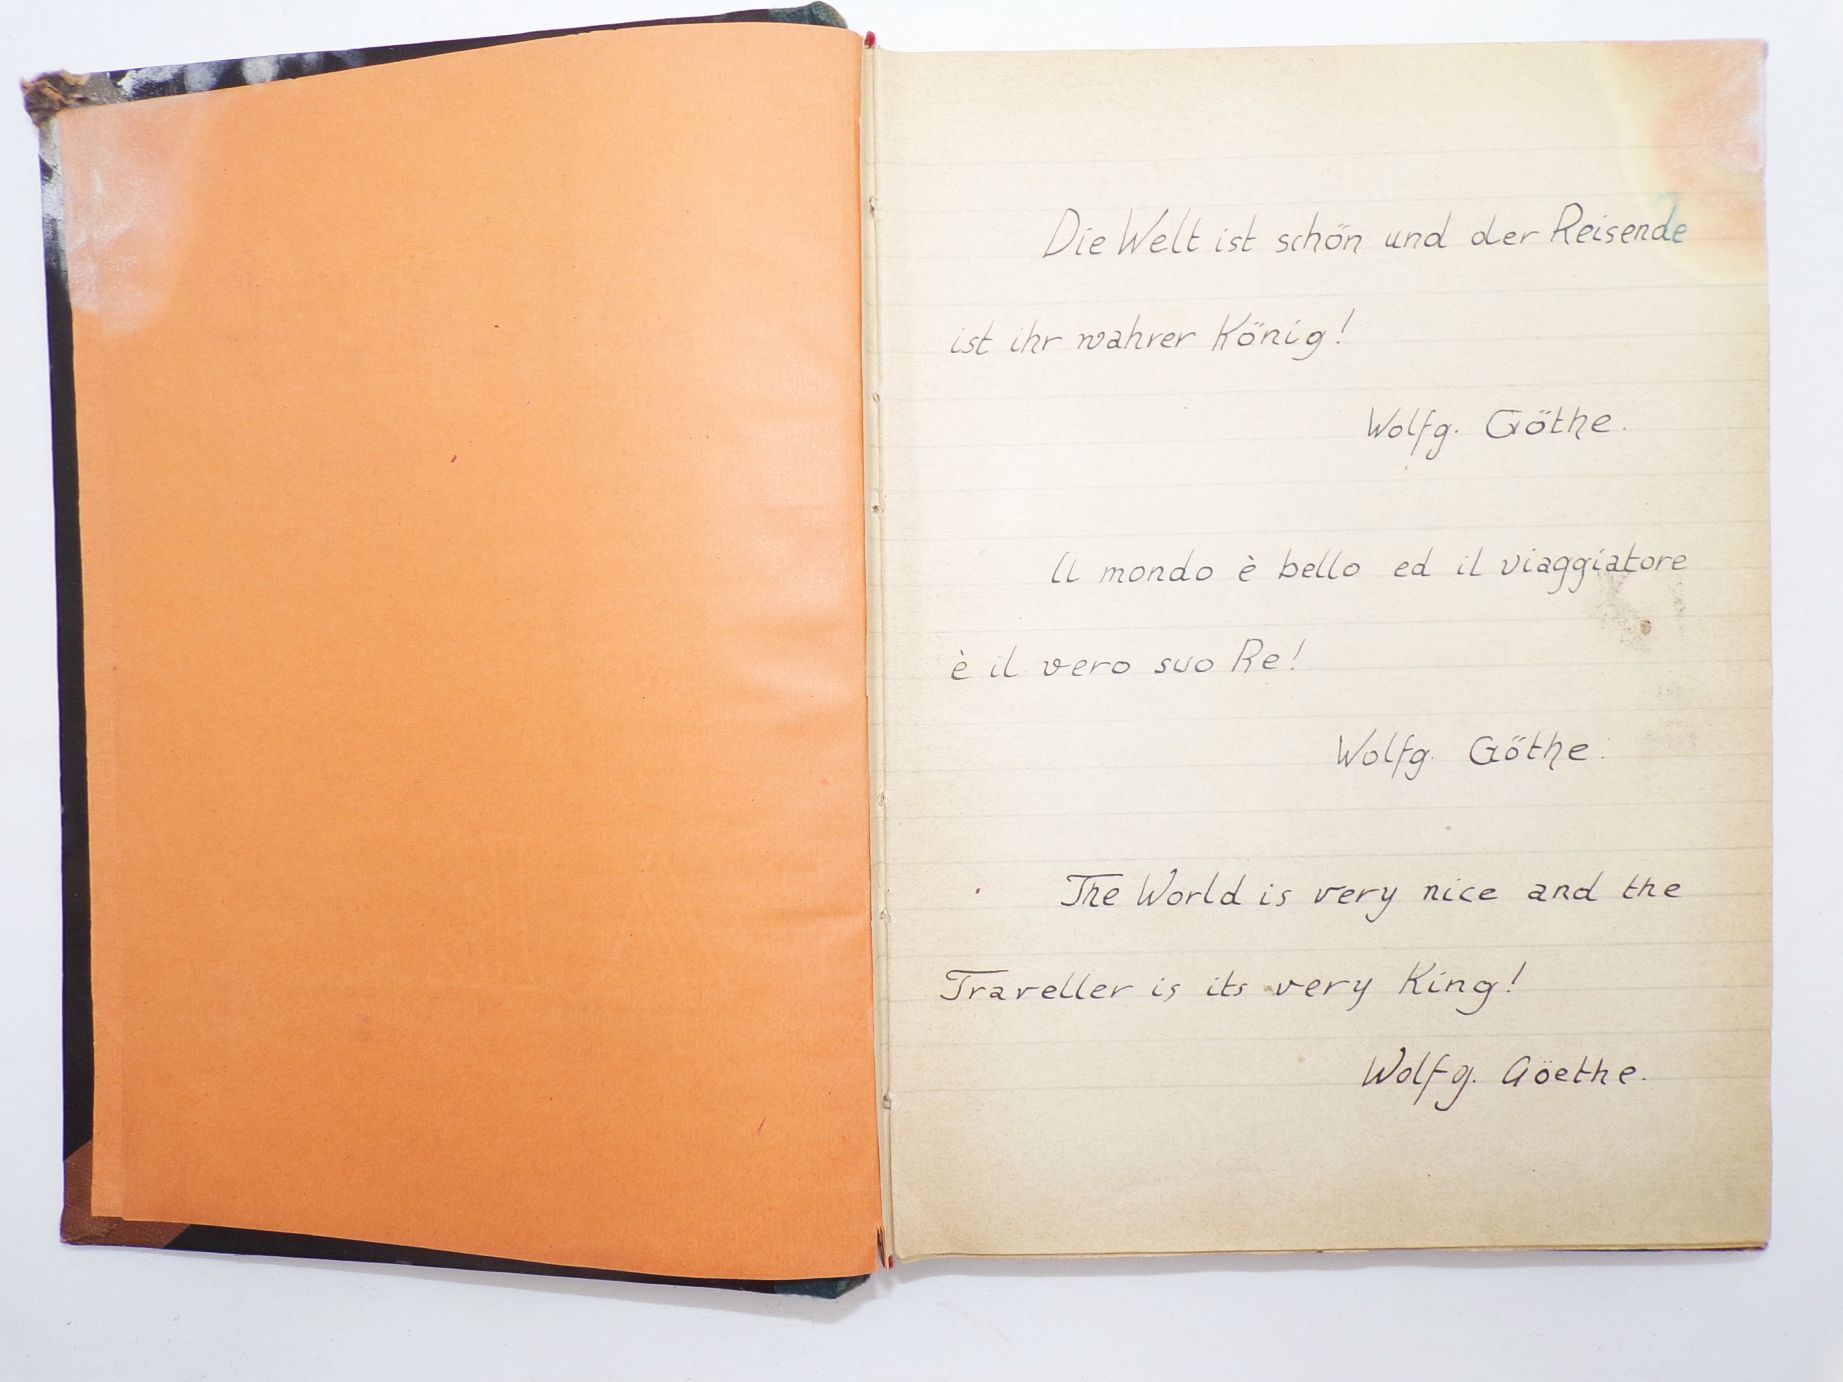 Die Welt ist schön und der Reisende
ist ihr wahrer König!
Wolfg. Göthe.
Il mondo è bello ed il viaggiatore
è il vero suo Re!
Wolfg. Göthe.
The World is very nice and the
Traveller is its very King!
Wolfg. Göethe.